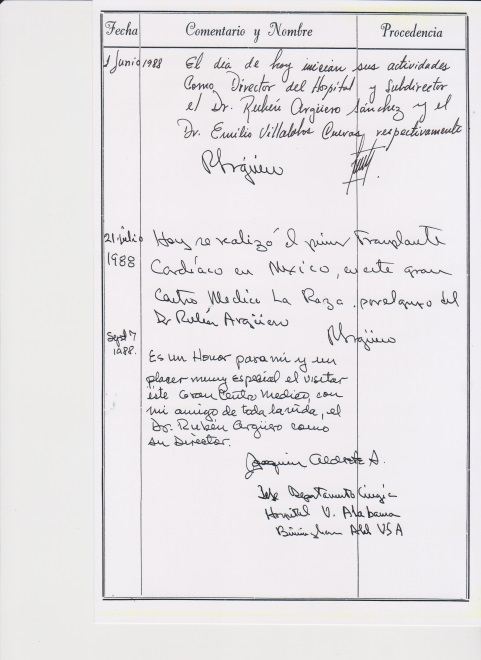 Fecha Comentario y Nombre Procedencia
1 Junio 1988 El dia de hoy inician sus actividades
Como Director del Hospital y Subdirector
el Dr. Rubén Argüero Sánchez y el
Dr. Emilio Villalobos Cuevas, respectivamente
RArgüero
21-julio Hoy se realizó el primer Transplante
1988 Cardíaco en México, en este gran
Centro Medico La Raza. por el grupo del
Dr Rubén Argüero
RArgüero
Sept 7
1988. Es un Honor para mi y un
placer muy especial el visitar
este Gran Centro Medico, con
mi amigo de toda la vida, el
Dr. Rubén Argüero como
su Director.
Joaquin A.
Jefe Departamento Cirugía
Hospital U. Alabama
Birmingham USA